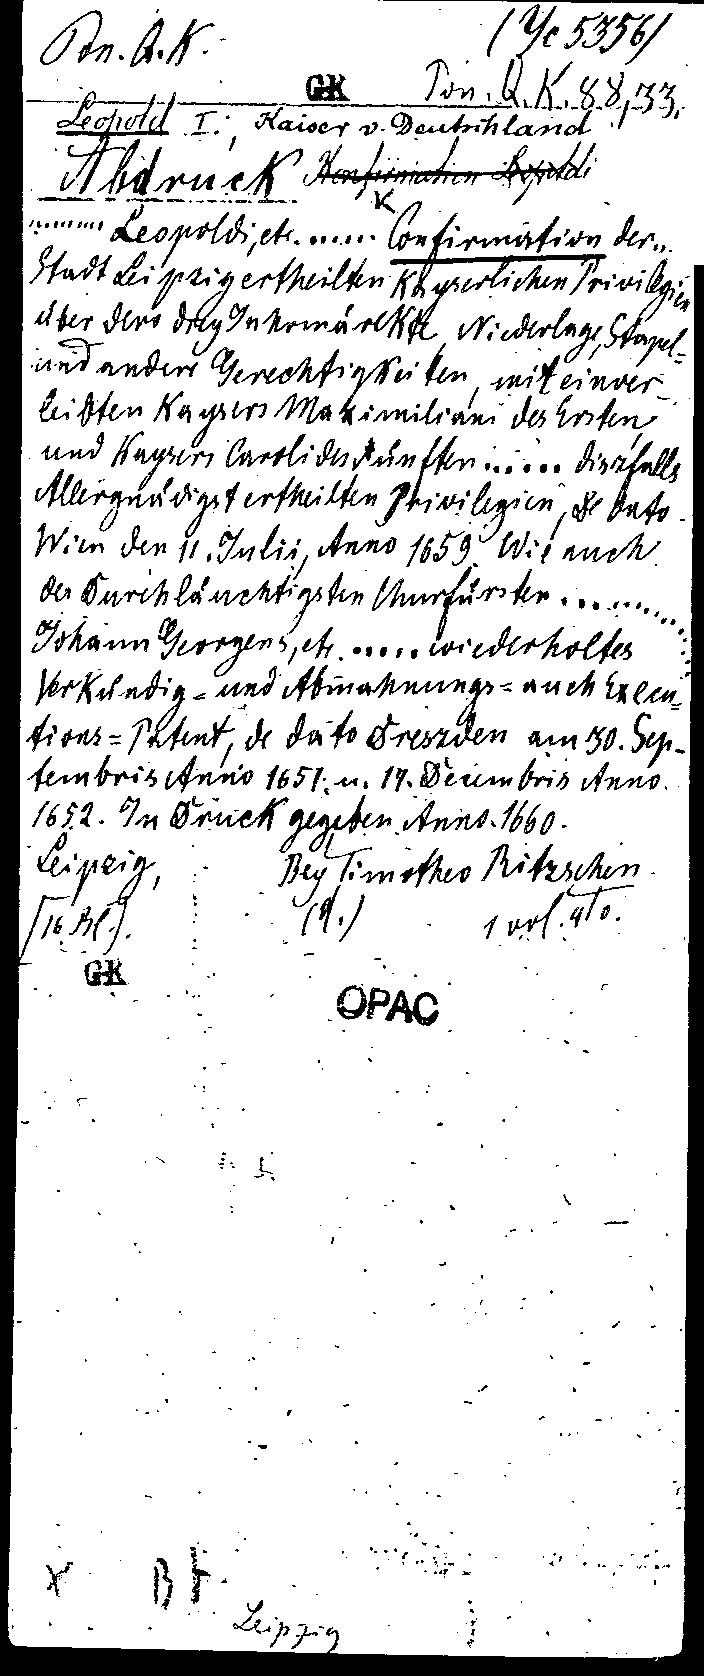 Pon. Q. K. (Yc 5356)
GK Pon. Q. K. 88,33.
Leopold I., Kaiser v. Deutschland
Abdruck Konfirmation Leopoldi
...... Leopoldi, etc. ...... Confirmation der..
Stadt Leipzig ertheilten Kayserlichen Privilegien
über dero drey Jahrmärckte, Niederlage, Stapel=
und andere Gerechtigkeiten, mit einver-
leibten Kaysers Maximiliani des Ersten,
und Kaysers Caroli des Fünften ...... diszfalls
Allergnädigst ertheilten Privilegien, de dato
Wien den 11. Julii, Anno 1659. Wie auch
des Durchläuchtigsten Churfürsten ............
Johann Georgens, etc. ..... wiederholtes
Verkündig= und Abmahnungs= auch Execu=
tions= Patent, de dato Dreszden am 30. Sep-
tembris Anno 1651. u. 17. Decembris Anno.
1652. In Druck gegeben Anno. 1660.
Leipzig, Bey Timotheo Ritzschen.
[16 Bl.]. 1 vol. 4to.
GK
OPAC
X
Leipzig